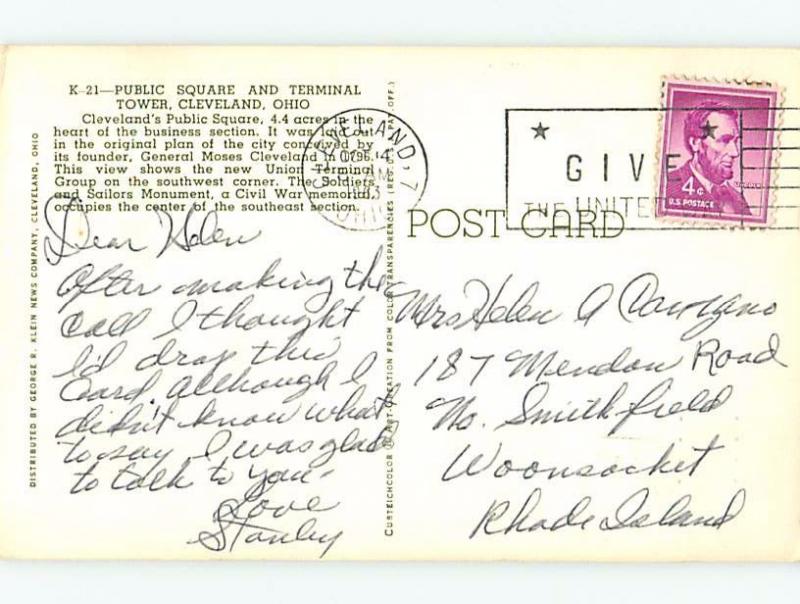 K-21—PUBLIC SQUARE AND TERMINAL
TOWER, CLEVELAND, OHIO
Cleveland's Public Square, 4.4 acres in the
heart of the business section. It was laid out
in the original plan of the city conceived by
its founder, General Moses Cleveland in 1796.
This view shows the new Union Terminal
Group on the southwest corner. The Soldiers
and Sailors Monument, a Civil War memorial,
occupies the center of the southeast section.
Dear Helen
After making the
call I thought
I'd drop this
Card. Although I
didn't know what
to say, I was glad
to talk to you-
Love
Stanley
DISTRIBUTED BY GEORGE R. KLEIN NEWS COMPANY, CLEVELAND, OHIO
CURTEICHCOLOR ® ART-CREATION FROM COLOR TRANSPARENCIES (REG. U.S. PAT. OFF.)
CLEVELAND, 7
14
OHIO
GIVE
THE UNITED
4¢
U.S. POSTAGE
POST CARD
Mrs Helen A
187 Mendon Road
No. Smithfield
Woonsocket
Rhode Island